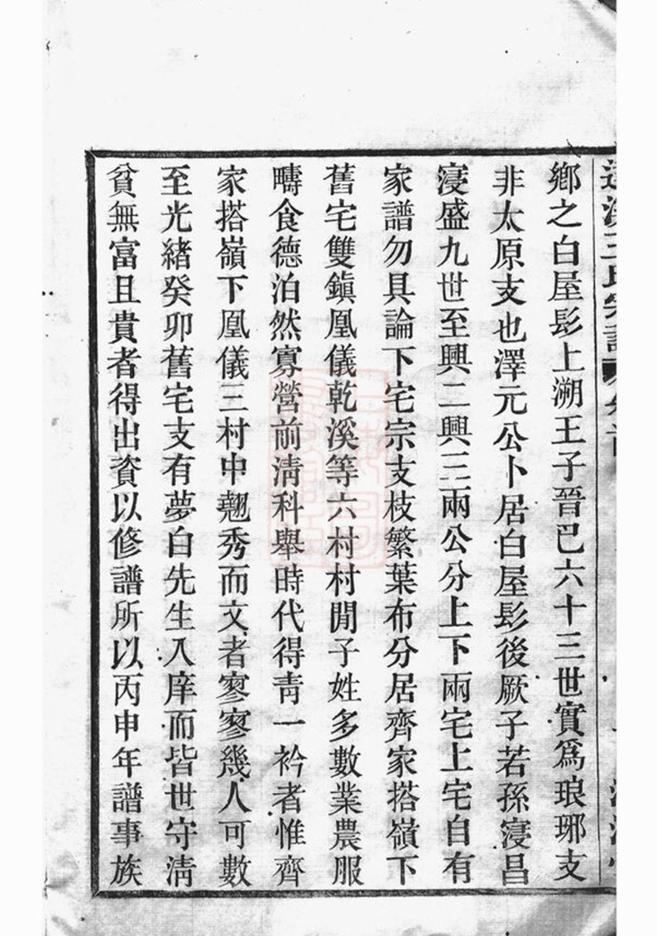 鄉之白屋髟上溯王子晉巳六十三世實爲琅琊支
非太原支也澤元公卜居白屋髟後厥子若孫寖昌
寖盛九世至興二興三兩公分上下兩宅上宅自有
家譜勿具論下宅宗支枝繁葉布分居齊家搭嶺下
舊宅雙鎭凰儀乾溪等六村村閒子姓多數業農服
疇食德泊然寡營前淸科舉時代得靑一衿者惟齊
家搭嶺下凰儀三村中翹秀而文者寥寥幾人可數
至光緒癸卯舊宅支有夢白先生入庠而皆世守淸
貧無富且貴者得出資以修譜所以丙申年譜事族